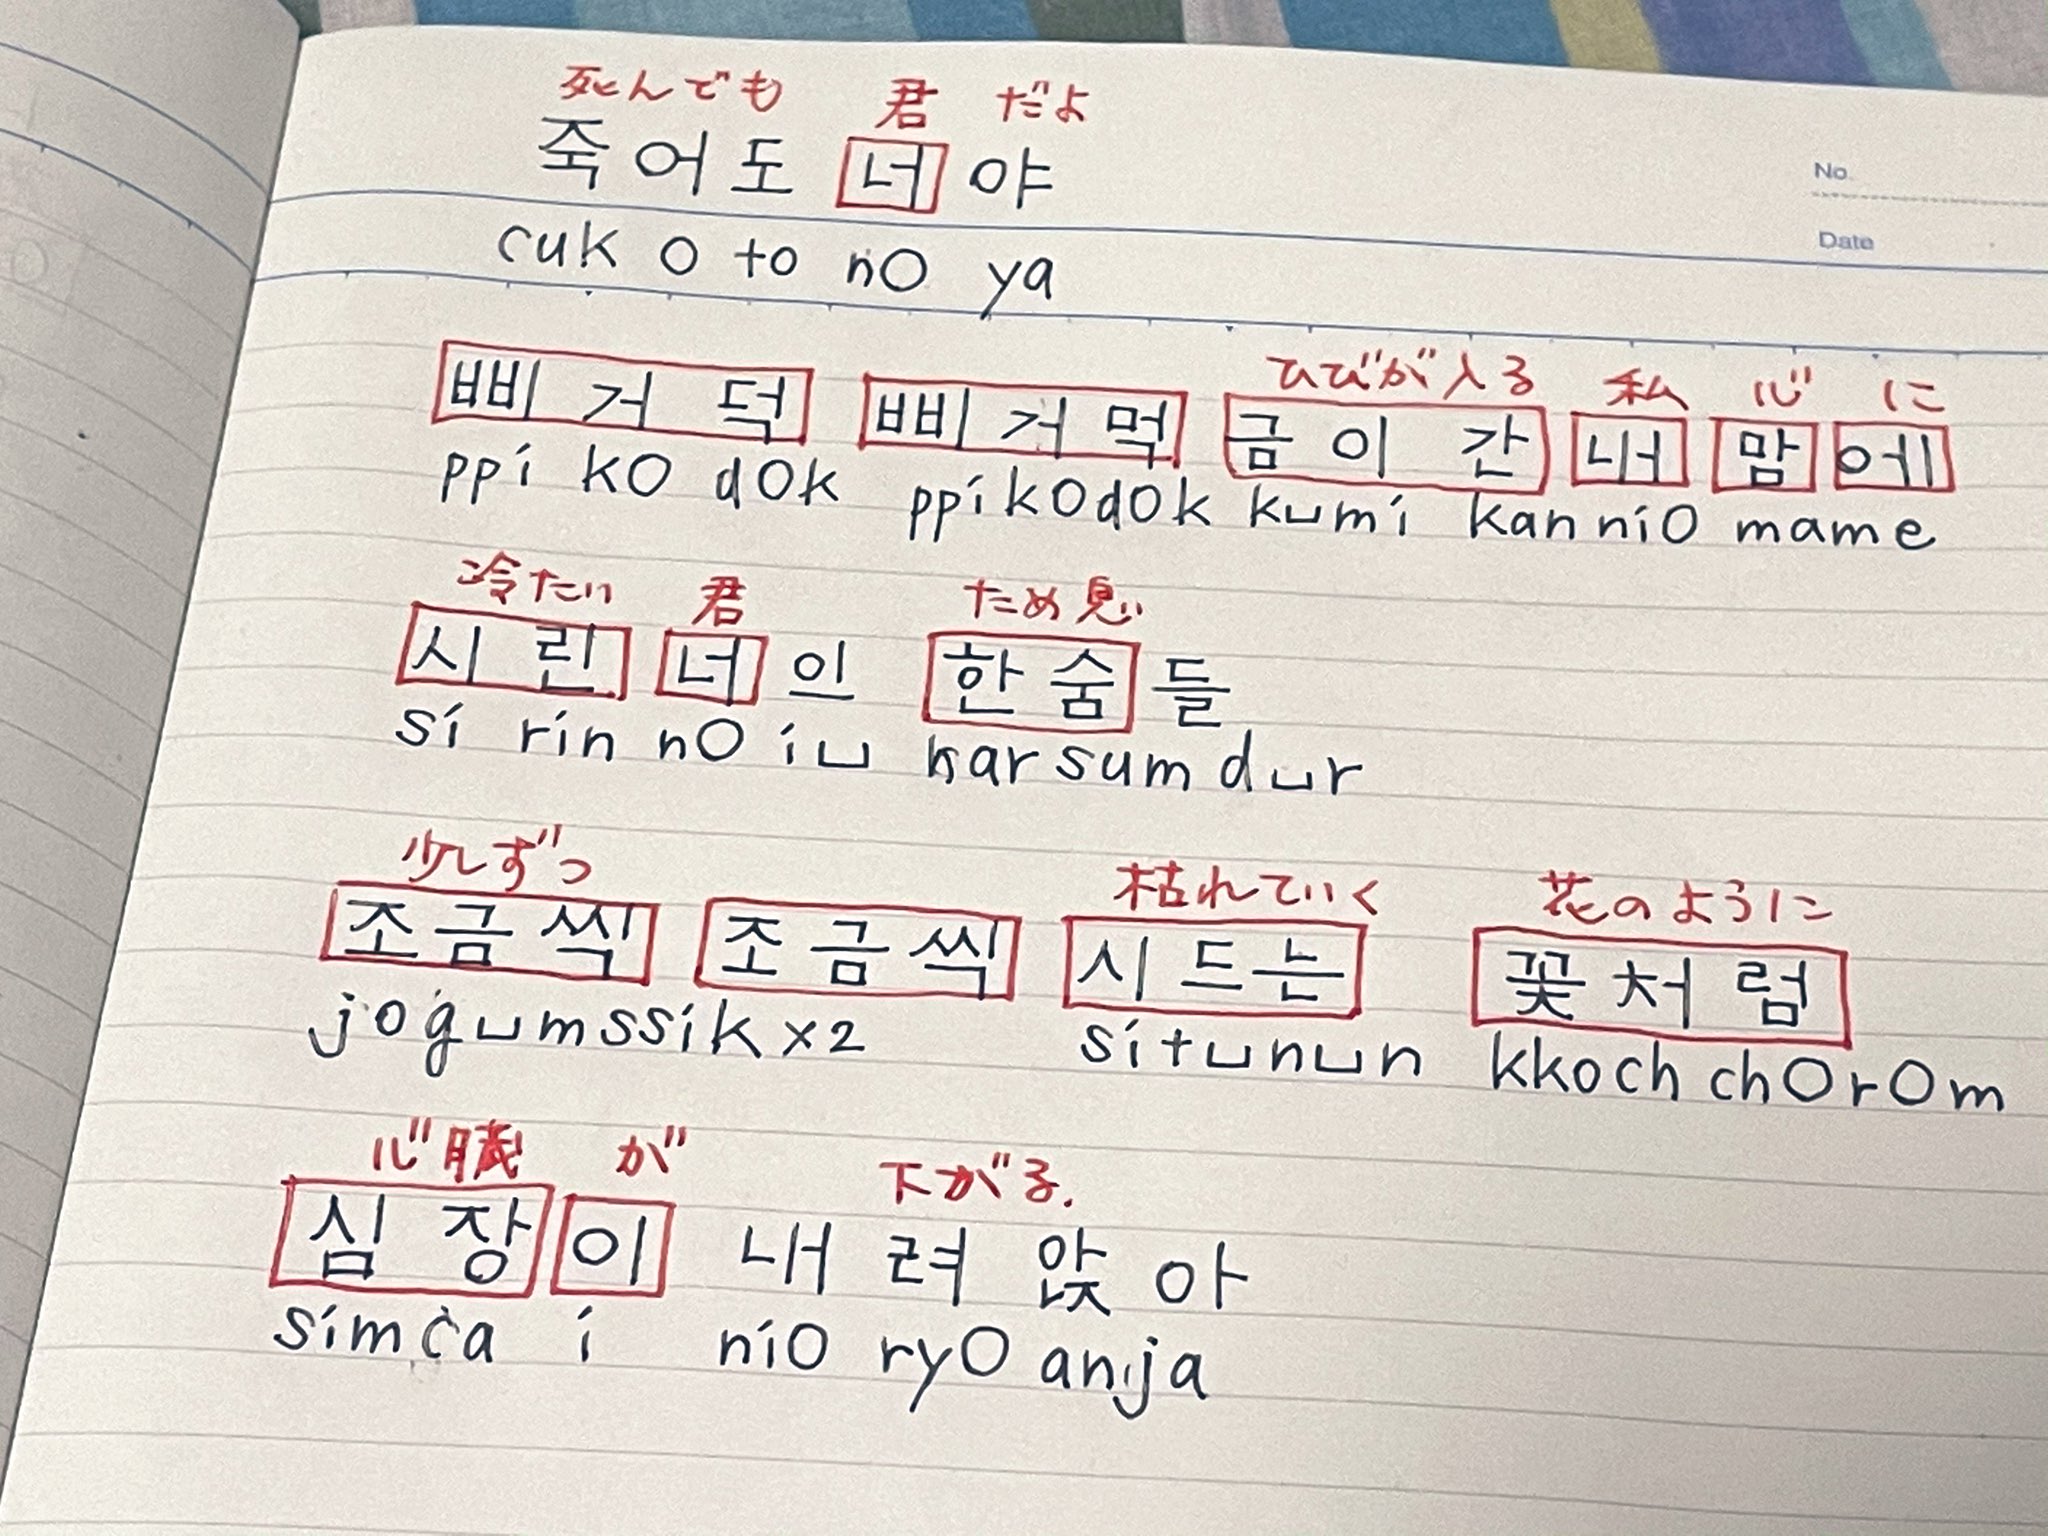 死んでも 君 だよ
죽어도 너야
No.
cuk o to nO ya
Date
ひびが入る 私 心 に
삐거덕 삐거먹 금이간 너 맘에
ppi kO dOk ppikOdOk kumi kan niO mame
冷たい 君 ため息
시린 너의 한숨들
si rin nO iu harsumdur
少しずつ 枯れていく 花のように
조금씩 조금씩 시드는 꽃처럼
jogumssik x2 situnun kkoch chOrOm
心臓 が 下がる.
심장이 내려앉아
simca i niO ryO anja